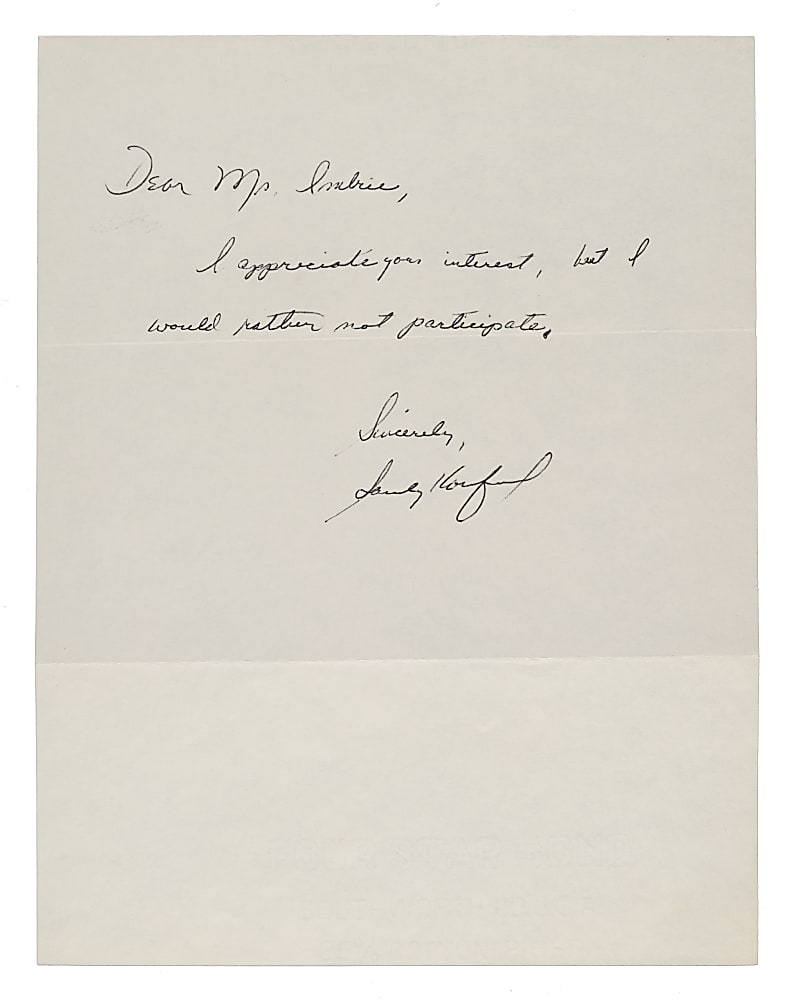 Dear Ms. Imbrie,
I appreciate your interest, but I
would rather not participate.
Sincerely,
Sandy Koufax